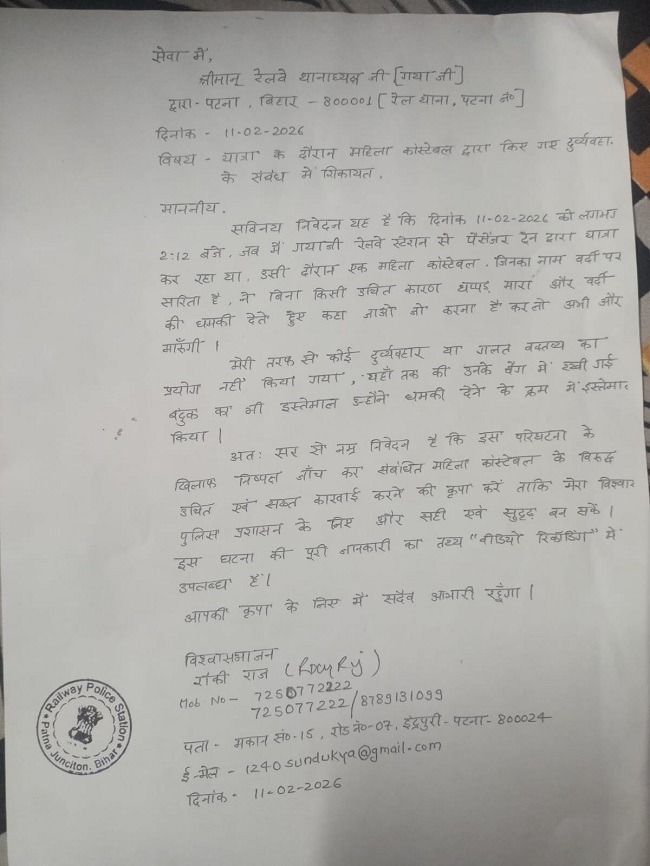 सेवा में,
श्रीमान् रेलवे थानाध्यक्ष जी [गया जी]
द्वारा - पटना, बिहार - 800001 [रेल थाना, पटना जं०]
दिनांक - 11-02-2026
विषय - यात्रा के दौरान महिला कांस्टेबल द्वारा किए गए दुर्व्यवहा.
के संबंध में शिकायत.
माननीय.
सविनय निवेदन यह है कि दिनांक 11-02-2026 को लगभग
2:12 बजे. जब में गयाजी रेलवे स्टेशन से पैसेंजर ट्रेन द्वारा यात्रा
कर रहा था. उसी दौरान एक महिला कांस्टेबल. जिनका नाम वर्दी पर
सरिता है, ने बिना किसी उचित कारण थप्पड़ मारा और वर्दी
की धमकी देते हुए कहा जाओ जो करना है कर लो अभी और
मारुँगी।
मेरी तरफ से कोई दुर्व्यवहार या गलत वक्तव्य का
प्रयोग नहीं किया गया, यहाँ तक की उनके बैग में रखी गई
बंदुक का भी इस्तेमाल उन्होंने धमकी देने के क्रम में इस्तेमा.
किया।
अतः सर से नम्र निवेदन है कि इस परिघटना के
खिलाफ निष्पक्ष जाँच कर संबंधित महिला कांस्टेबल के विरुद्ध
उचित एवं सख्त कारवाई करने की कृपा करें ताकि मेरा विश्वास
पुलिस प्रशासन के लिए और सही एवं सुदृढ़ बन सकें।
इस घटना की पूरी जानकारी का तथ्य "वीडियो रिकॉर्डिंग" में
उपलब्ध है।
आपकी कृपा के लिए मैं सदैव आभारी रहूँगा।
विश्वासभाजन
रॉकी राज (Rocky Rj)
Mob No - 7250772222
725077222/8789131099
पता - मकान सं०-15, रोड नं०-07, इंद्रपुरी - पटना - 800024
ई-मेल - 1240sundukya@gmail.com
दिनांक - 11-02-2026
Railway Police Station
Patna Junciton, Bihar